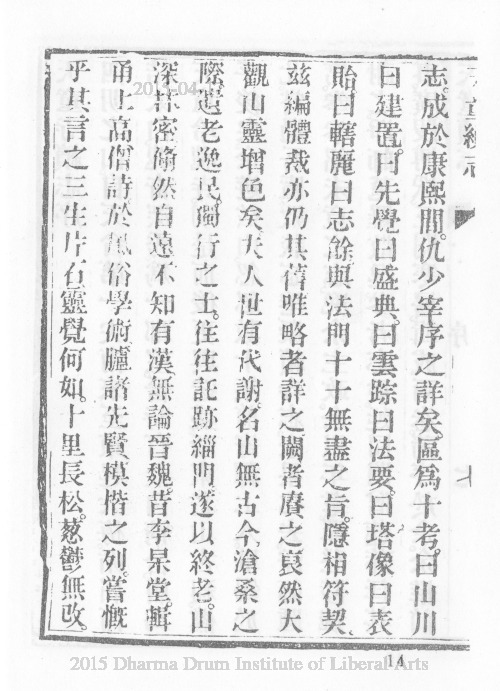 天童續志
志。成於康熙間。仇少宰序之詳矣。區爲十考。曰山川
曰建置。曰先覺曰盛典。曰雲踪曰法要。曰塔像曰表
貽曰轄麗曰志餘與法門十十無盡之旨。隱相符契、
茲編體裁亦仍其舊唯略者詳之闕者賡之裒然大
觀山靈增色矣夫人世有代謝名山無古今、滄桑之
際遺老逸民獨行之士。往往託跡緇門、遂以終老。山
深林密翛然自遠不知有漢、無論晉魏。昔李杲堂。輯
甬上高僧詩於風俗學術臚諸先賢模楷之列。嘗慨
乎其言之三生片石靈覺何如。十里長松。蔥鬱無改。
序
七
14
2015 Dharma Drum Institute of Liberal Arts